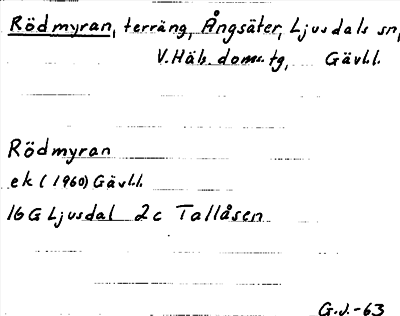 Rödmyran, terräng, Ångsäter, Ljusdals sn,
V. Häls. doms. tg, Gävl.l.
Rödmyran
ek (1960) Gävl.l.
16 G Ljusdal 2c Tallåsen
G.J.-63